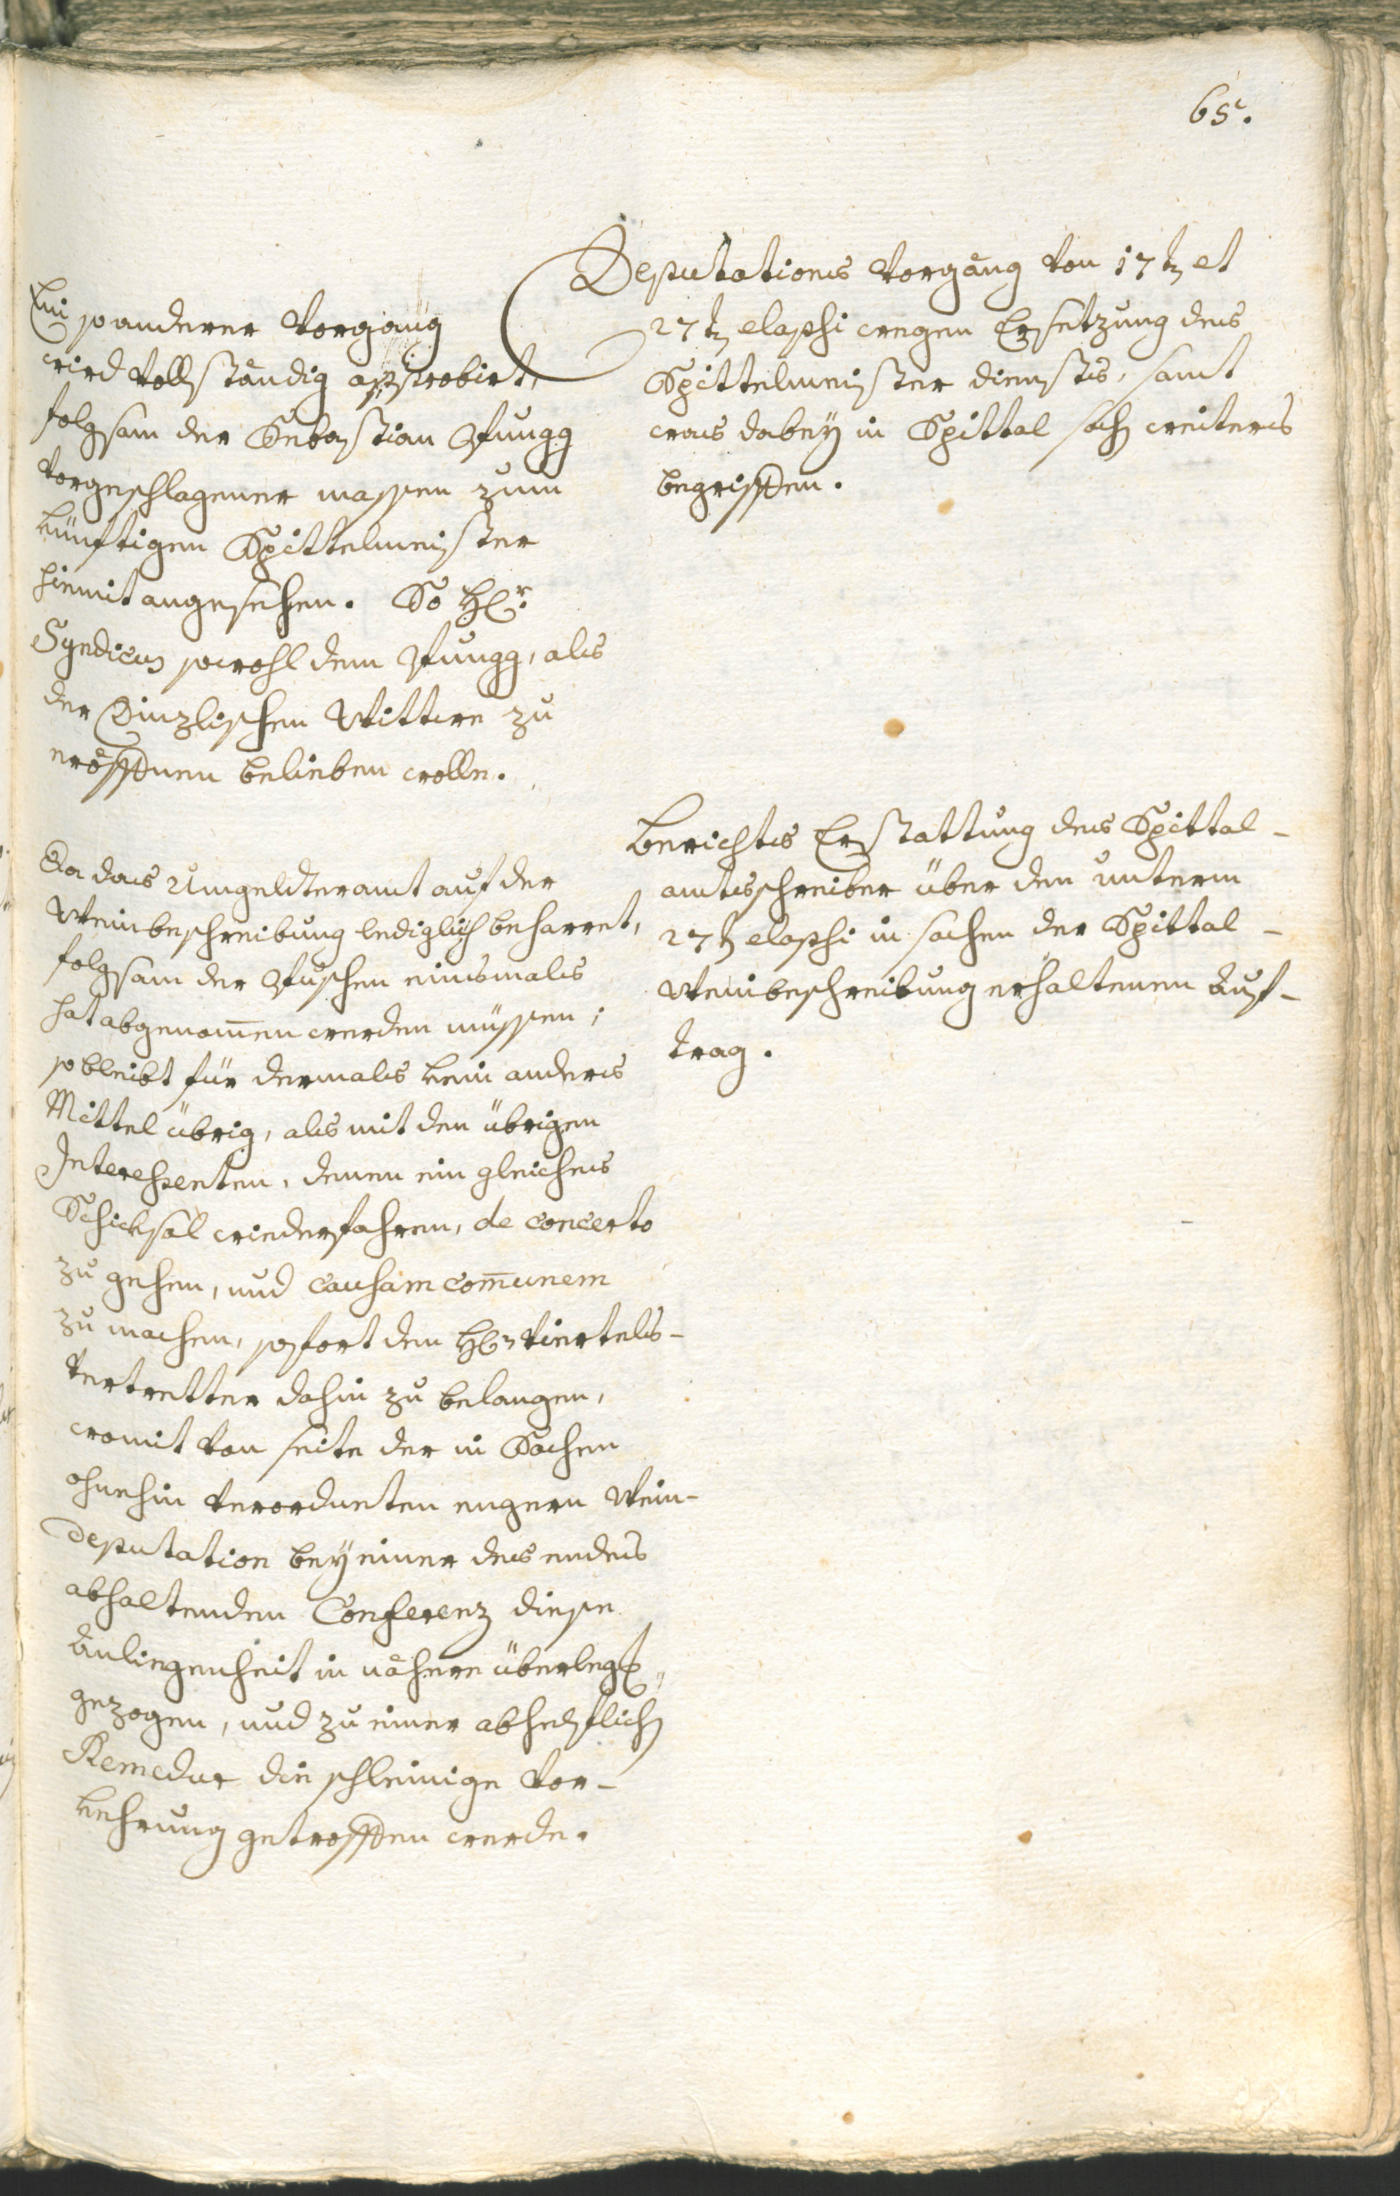 65.
Deputations Vorgang von 17t et
27t elapsi wegen Ersetzung des
Spittelmeister diensts, samt
was dabey in Spittal sach weiters
begriffen.
Ein so anderer Vorgang
wird vollständig approbirt,
folgsam der Sebastian Pfungg
vorgeschlagener massen zum
künftigen Spittelmeister
hiemit angesehen. So Hr.
Syndicus sowohl dem Pfungg, als
der Dinzlischen Wittwe zu
eröffnen belieben wolle.
Berichts Erstattung des Spittal-
amtsschreiber über den unterm
27t elapsi in sachen der Spittal-
weinbeschreibung erhaltenen Auf-
trag.
Da das Umgeldteramt auf der
Weinbeschreibung lediglich beharret,
folgsam der einsmals
hat abgenom̄en werden müssen;
so bleibt für dermals kein anders
Mittel übrig, als mit den übrigen
Interessenten, denen ein gleiches
Schicksal wiederfahren, de concerto
zu gehen, und causam com̄unem
zu machen, sofort den H. Viertels-
vertretter dahin zu belangen,
womit von seite der in Sachen
ohnehin verordneten engern Wein-
Deputation bey einer des endes
abhaltenden Conferenz diese
Anliegenheit in nähere überleg
gezogen, und zu einer abhelflich
Remedur die schleinige Vor-
kehrung getroffen werde.